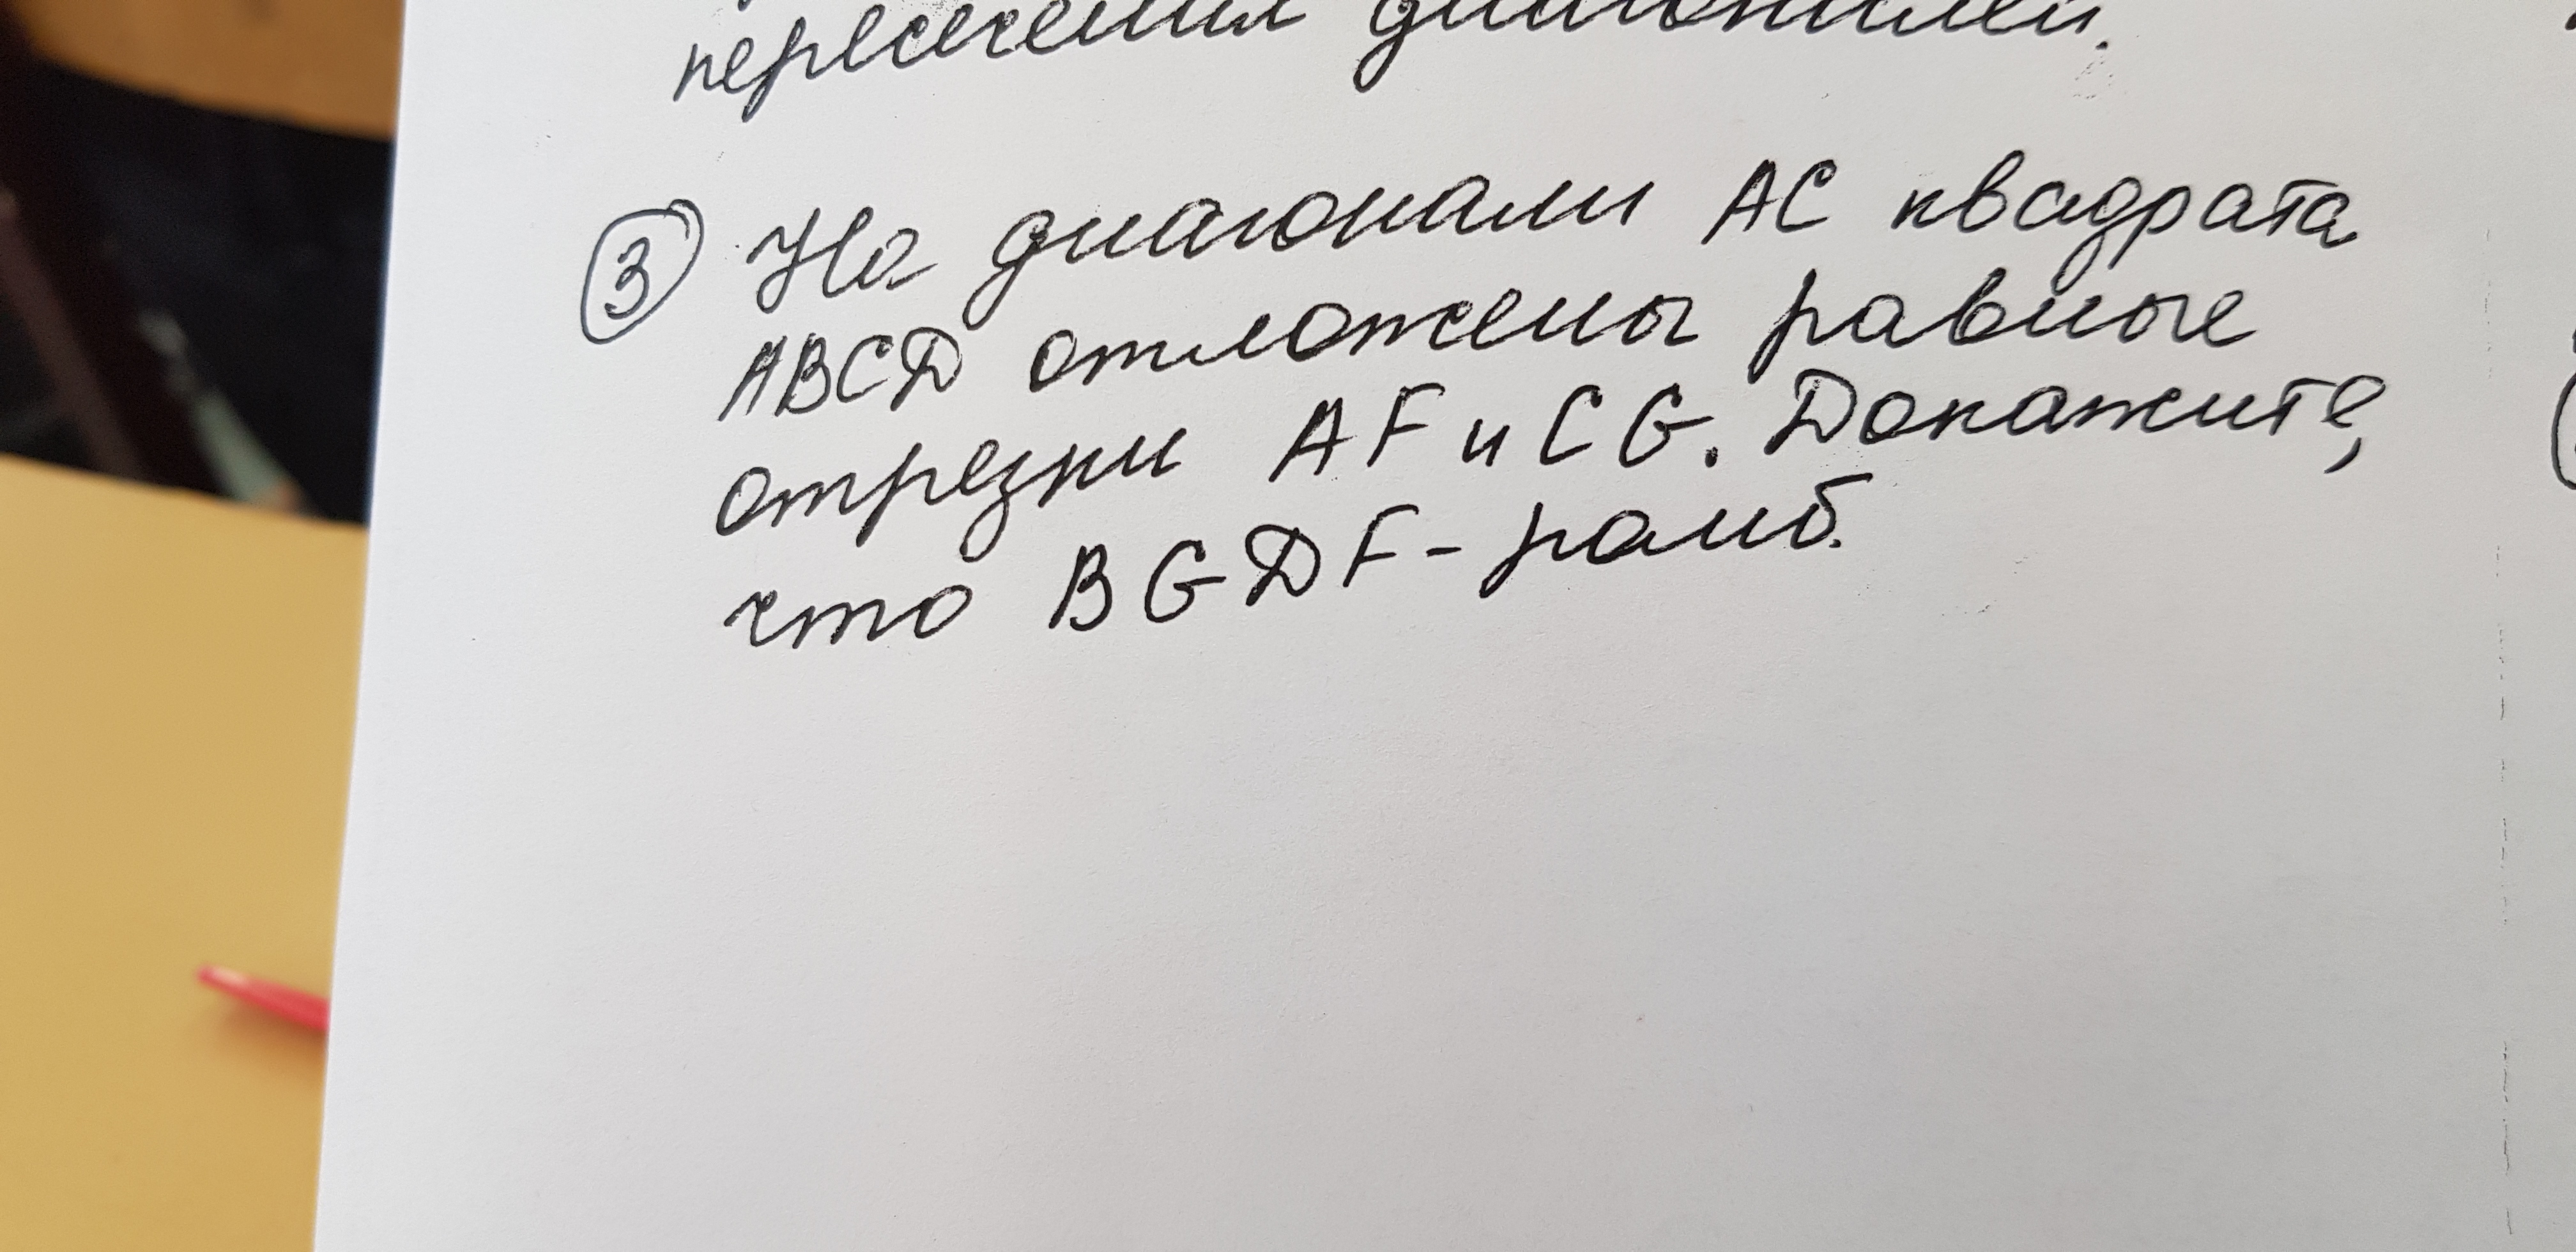 пересечения диагоналей.
③ На диагонали АС квадрата
ABCD отложены равные
отрезки AF и CG. Докажите,
что BGDF - ромб.